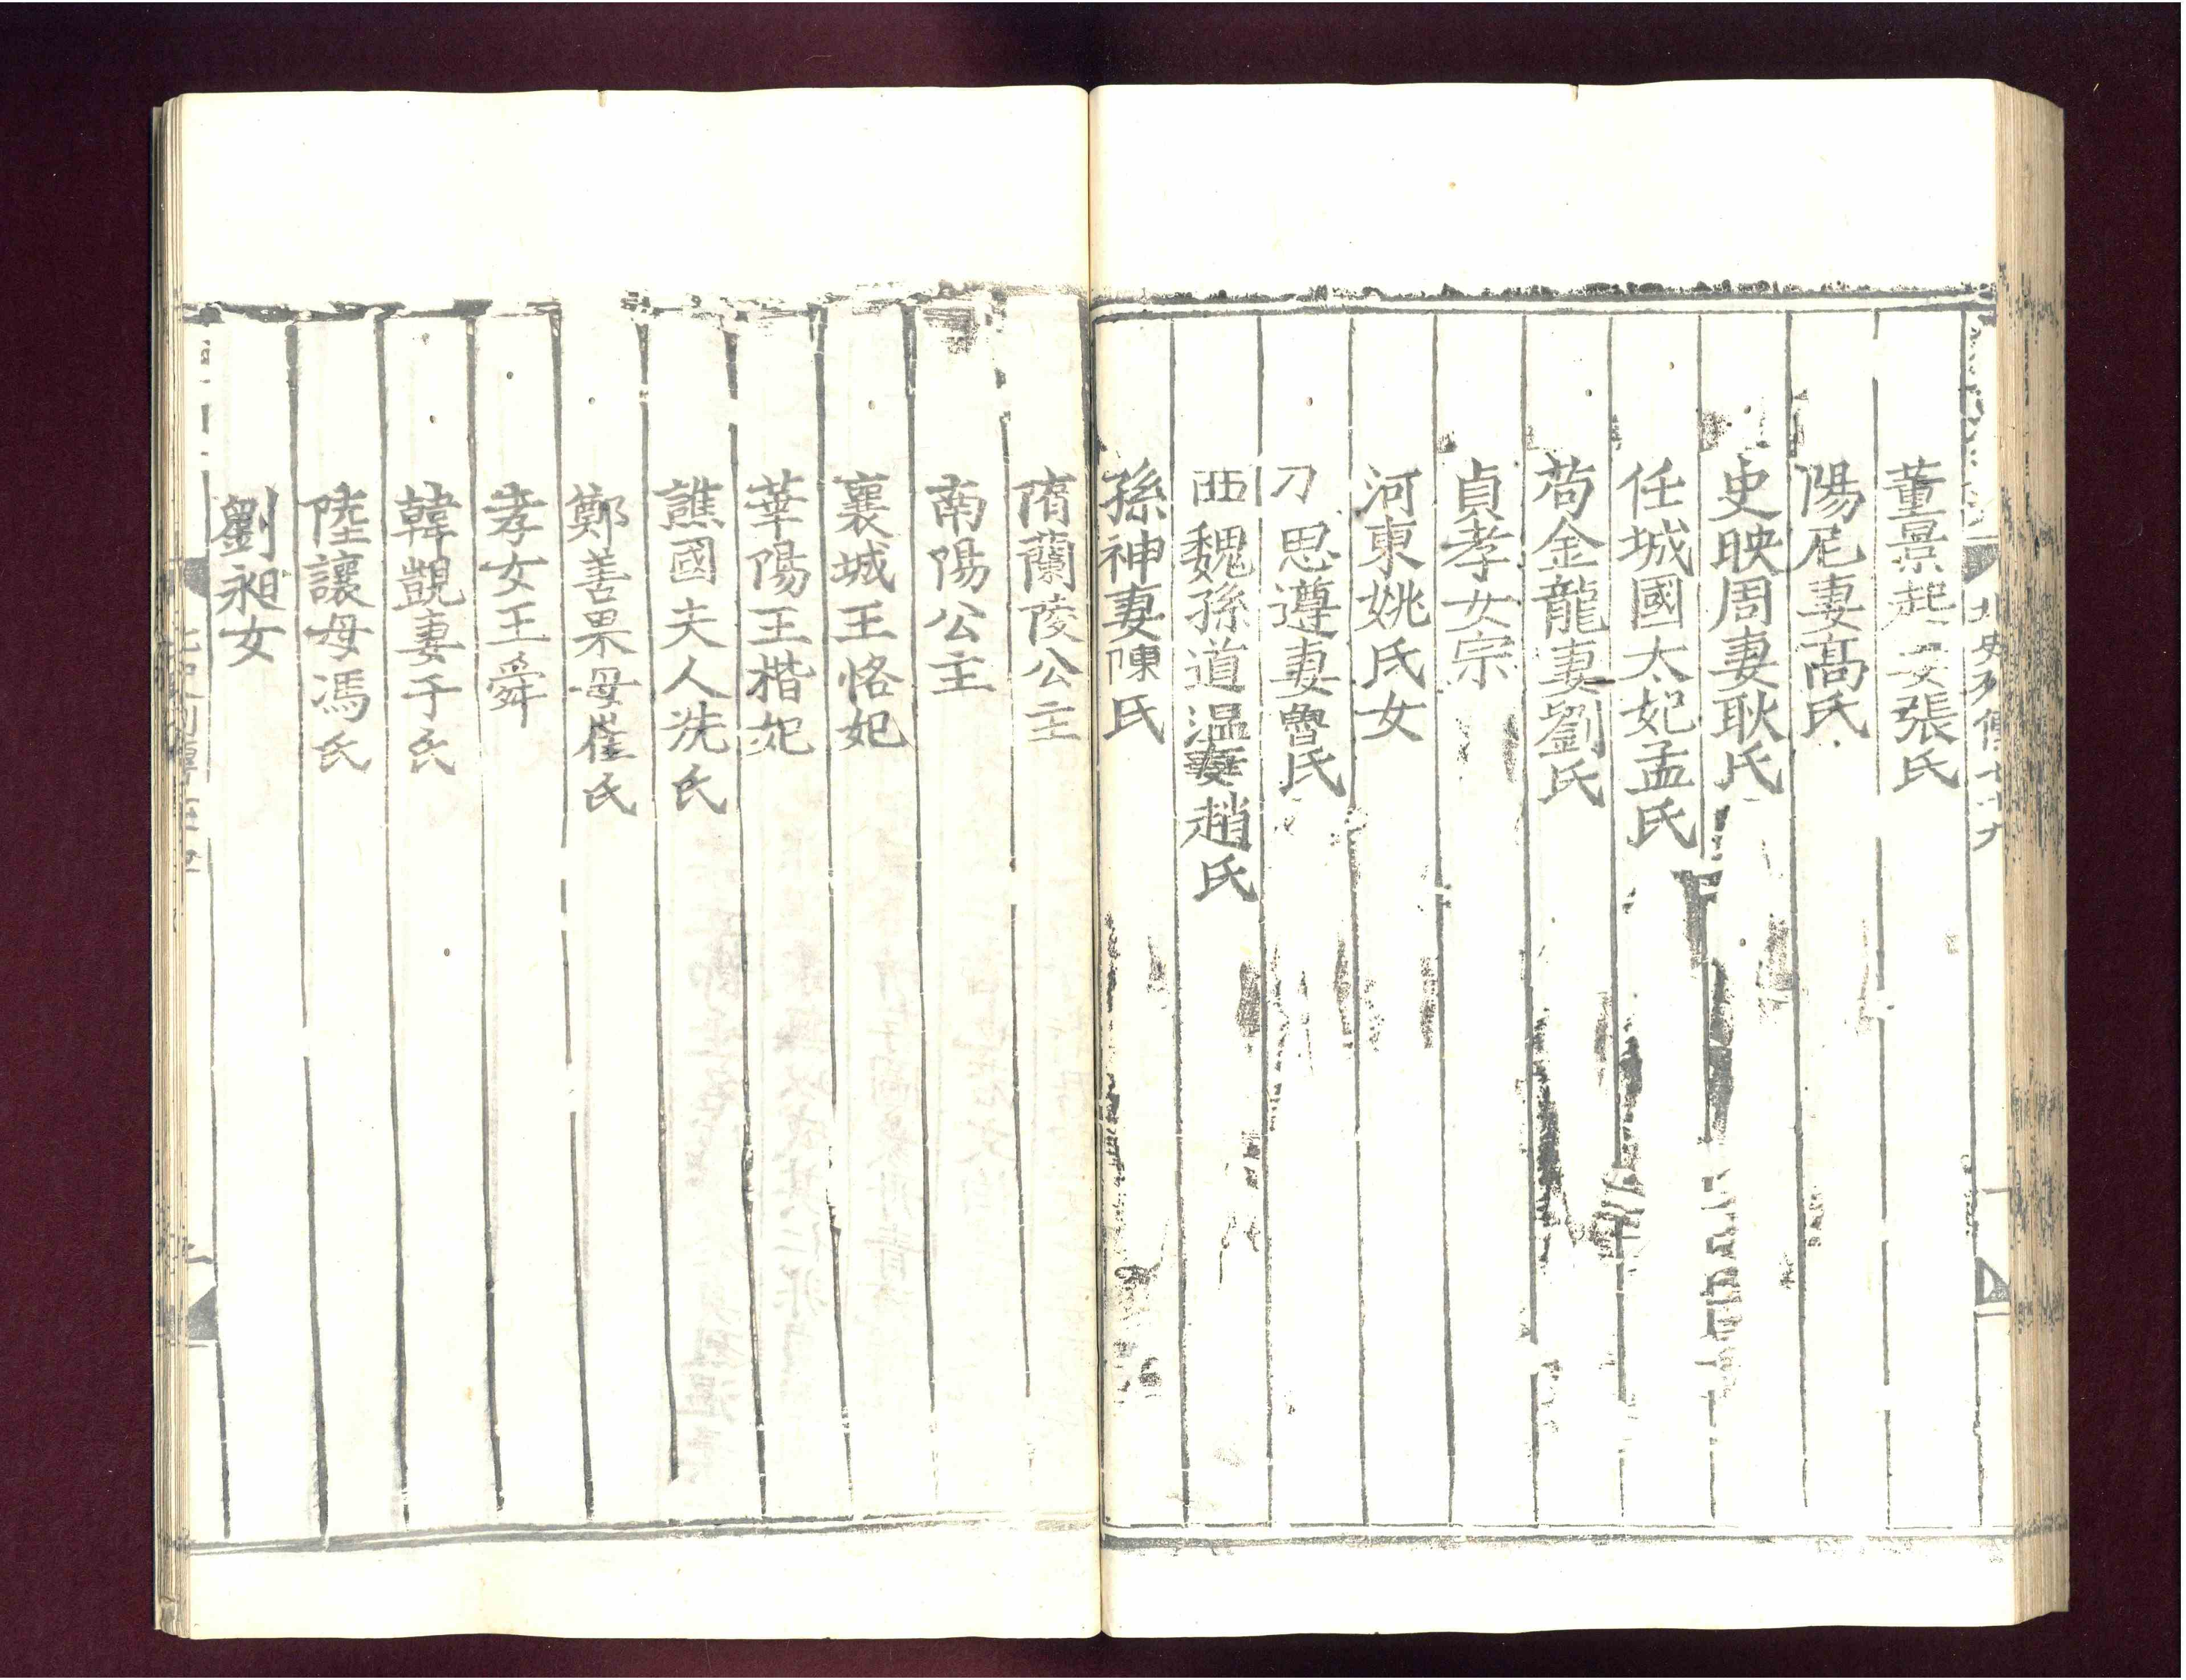 北史列傳七十九
董景起妻張氏
陽尼妻高氏
史映周妻耿氏
任城國太妃孟氏
苟金龍妻劉氏
貞孝女宗
河東姚氏女
刁思遵妻魯氏
西魏孫道温妻趙氏
孫神妻陳氏
隋蘭陵公主
南陽公主
襄城王恪妃
華陽王楷妃
譙國夫人洗氏
鄭善果母崔氏
孝女王舜
韓覬妻于氏
陸讓母馮氏
劉昶女